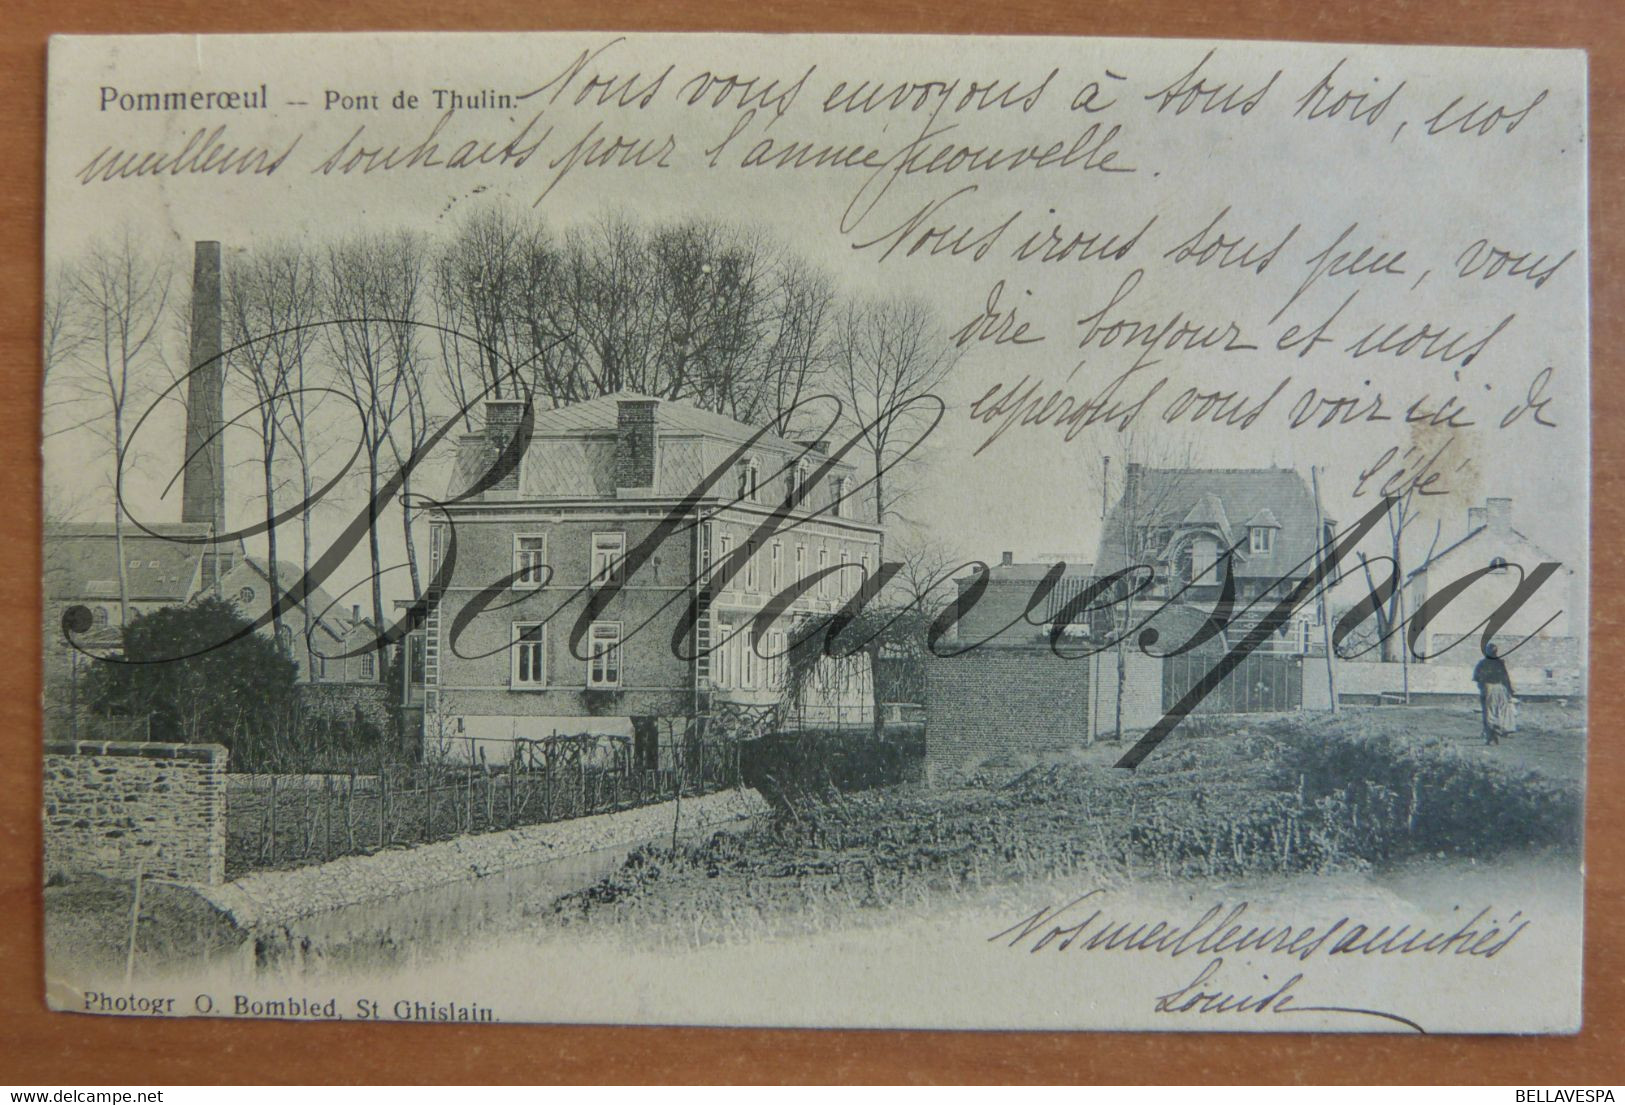 Pommerœul -- Pont de Thulin.
Nous vous envoyons à tous trois, nos
meilleurs souhaits pour l'année nouvelle.
Nous irons sous peu, vous
dire bonjour et nous
espérons vous voir ici de
l'été
Bellavespa
Nos meilleures amitiés
Louise
Photogr O. Bombled, St Ghislain.
delcampe.net
BELLAVESPA